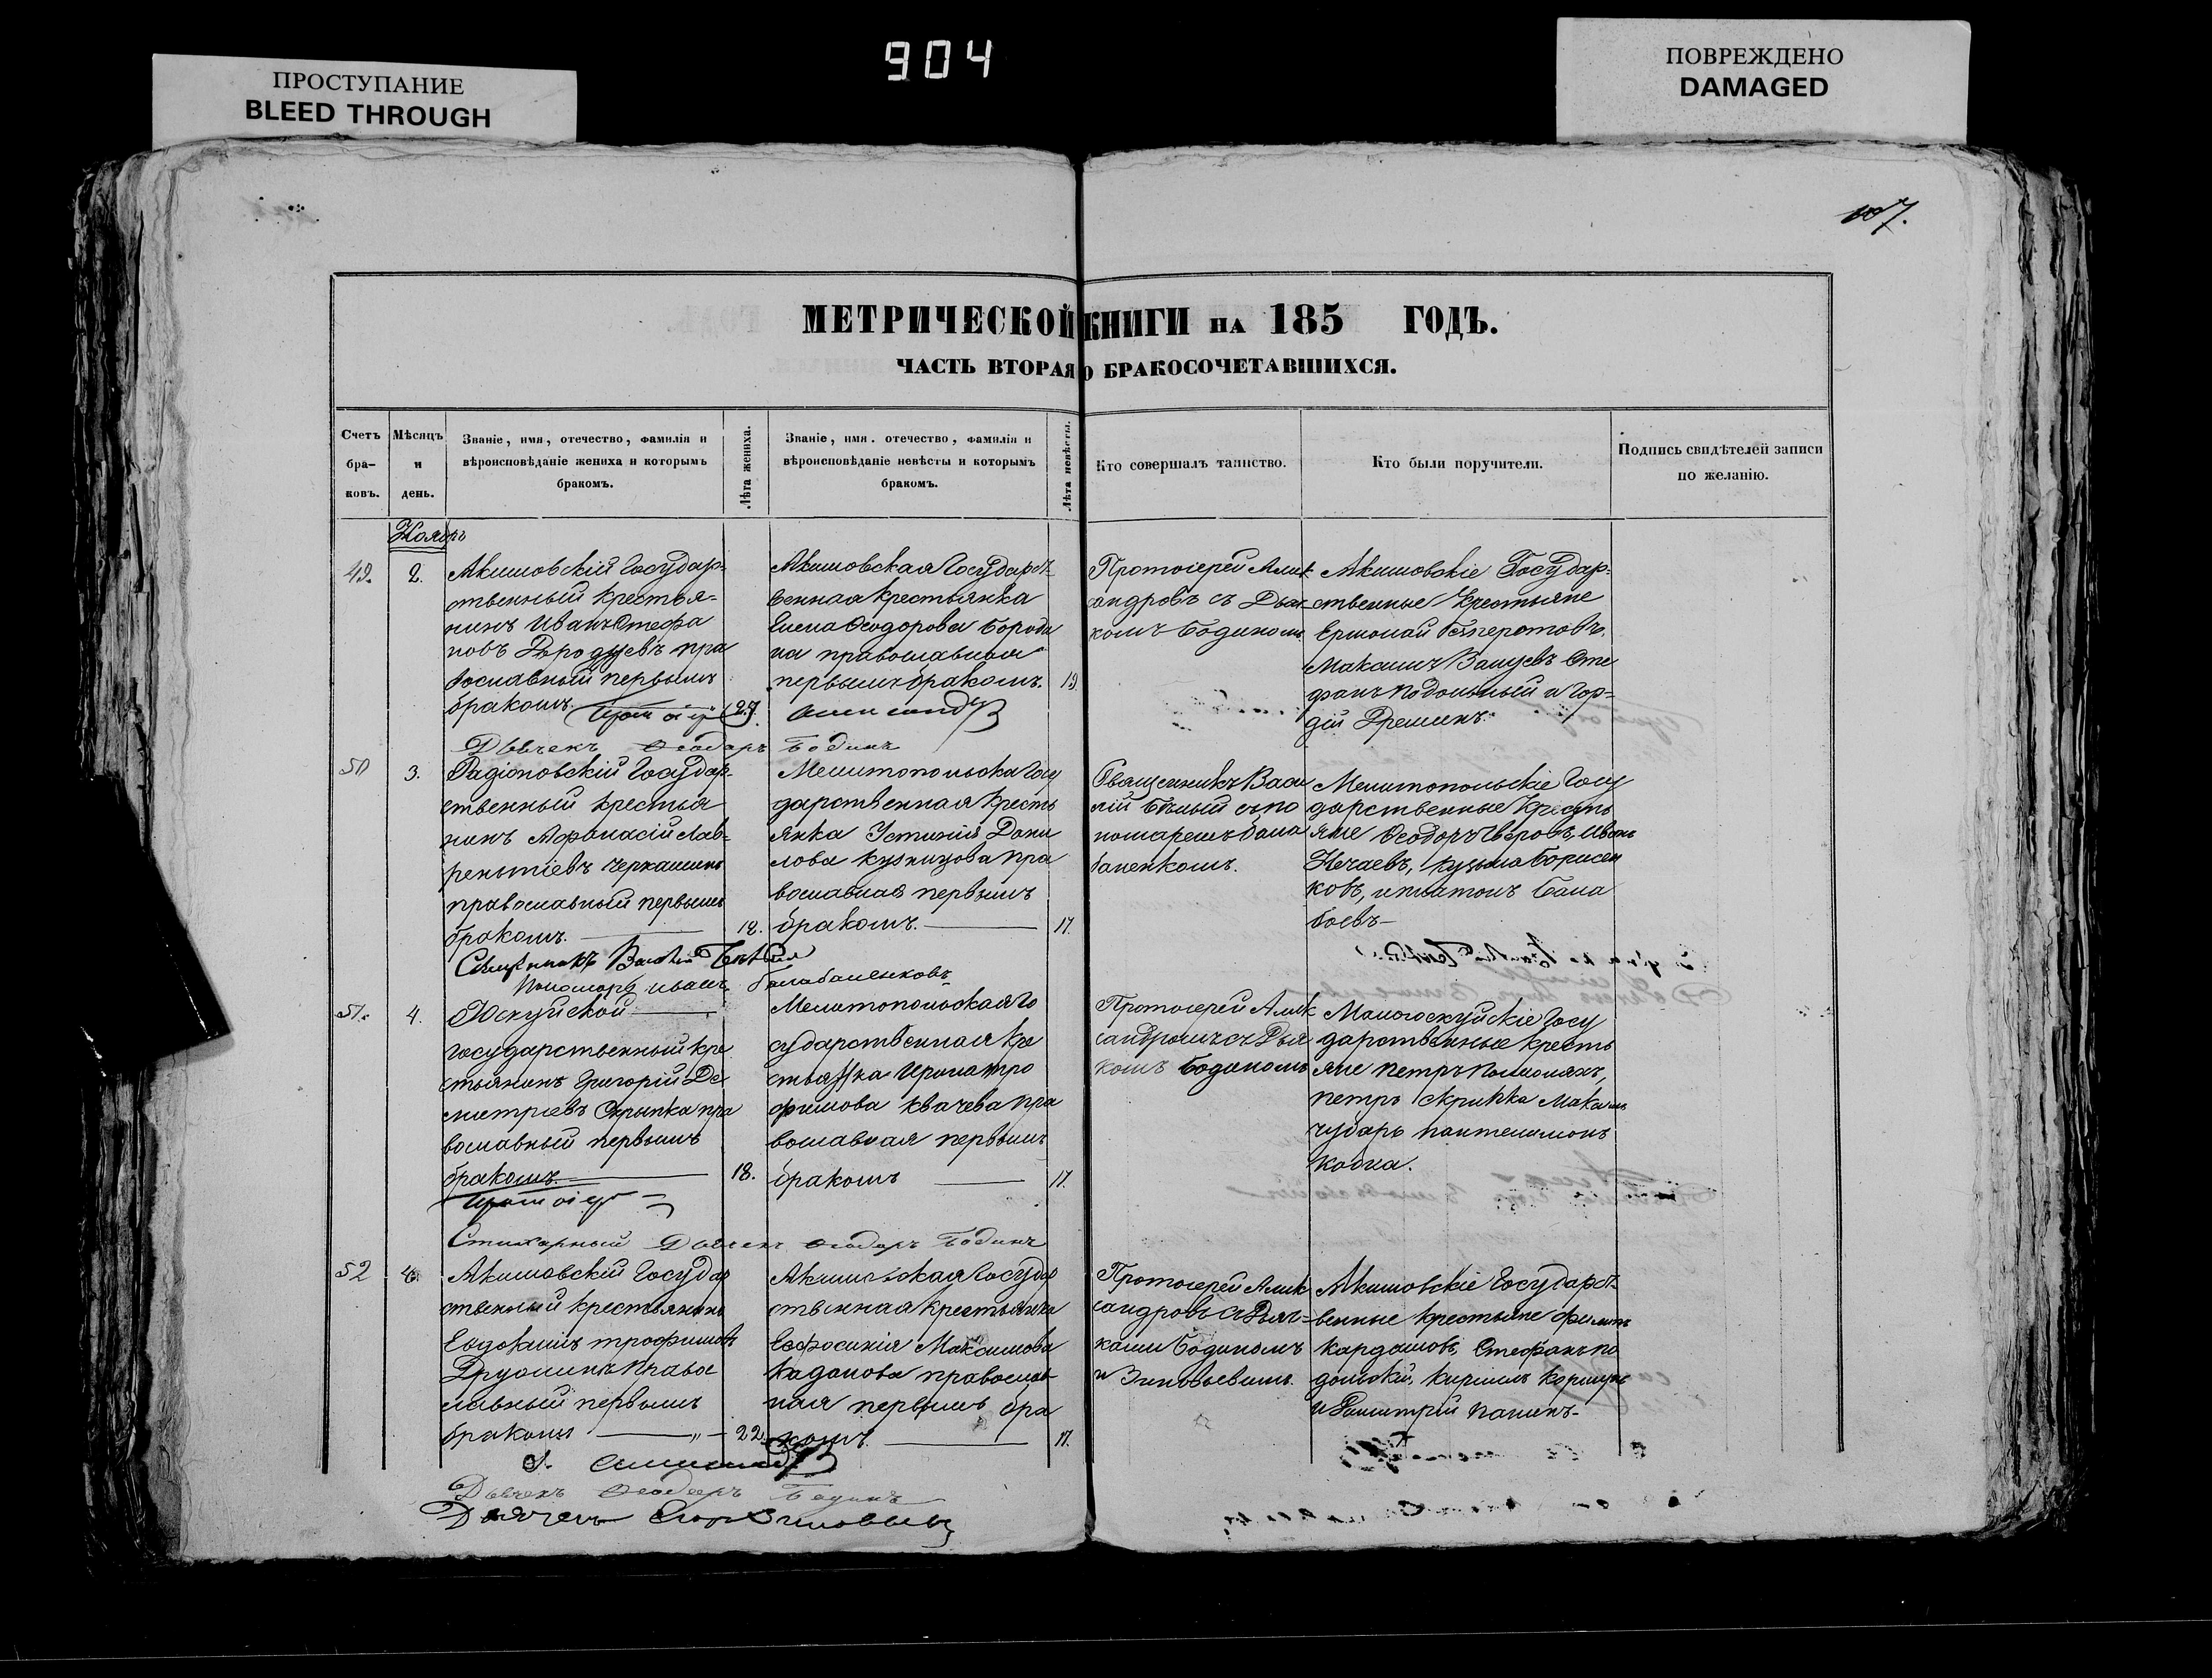 904
ПРОСТУПАНИЕ
BLEED THROUGH
ПОВРЕЖДЕНО
DAMAGED
107.
МЕТРИЧЕСКОЙ КНИГИ НА 185 ГОДЪ.
ЧАСТЬ ВТОРАЯ О БРАКОСОЧЕТАВШИХСЯ.
Счетъ
бра-
ковъ.
Мѣсяцъ
и
день.
Званіе, имя, отечество, фамилія и
вѣроисповѣданіе жениха и которымъ
бракомъ.
Лѣта жениха.
Званіе, имя. отечество, фамилія и
вѣроисповѣданіе невѣсты и которымъ
бракомъ.
Лѣта невѣсты.
Кто совершалъ таинство.
Кто были поручители.
Подпись свидѣтелей записи
по желанію.
Ноябрь
49.
2.
Акимовскій Государ-
ственный крестья-
нинъ Иванъ Стефа
новъ пра
вославный первымъ
бракомъ.
27.
Акимовская Государст-
венная крестьянка
Елена Ѳеодорова Бороди
на православная
первымъ бракомъ.
19
Протоіерей Алек
сандровъ съ Дьяч
комъ Бодиномъ.
Акимовскіе Государ-
ственные крестьяне
Ермолай
Максимъ Сте
фанъ Подольный и Гор-
дій
Дьячекъ Ѳеодоръ Бодинъ
50
3.
Радіоновскій Государ-
ственный крестья
нинъ Афанасій Лав-
рентіевъ Черкашинъ
православный первымъ
бракомъ.
18.
Мелитопольска Госу
дарственная кресть
янка Устинія Дани
лова Кузницова пра
вославная первымъ
бракомъ.
17.
Священникъ Васи
лій Бѣлый съ по
номаремъ Бала
баненкомъ.
Мелитопольскіе Госу
дарственные кресть
яне Ѳеодоръ Иванъ
Нечаевъ, Кузьма Борисен
ковъ, и Платонъ Бала
боевъ
Священникъ Василій Бѣлый
Пономарь Иванъ Балабаненковъ
51.
4.
Государственный кре
стьянинъ Григорій Ди
митріевъ Скрыпка пра
вославный первымъ
бракомъ.
18.
Мелитопольская Го
сударственная кре
стьянка Ирина Тро
фимова Квачева пра
вославная первымъ
бракомъ
17.
Протоіерей Алек
сандровъ съ Дья
комъ Бодиномъ
Госу
дарственные кресть
яне Петръ
Петръ Скрипка Максимъ
Чубарь Пантелимонъ
Кобца.
Стихарный Дьячекъ Ѳеодоръ Бодинъ
52
Акимовскій Государ
ственный крестьянинъ
Евдокимъ Трофимовъ
Право
славный первымъ
бракомъ
22.
Акимовская Государ
ственная крестьянка
Евфросинія Максимова
Кадонова православ
ная первымъ бра
комъ.
17.
Протоіерей Алек
сандровъ съ Дьяч-
ками Бодиномъ
и Зиновьевымъ.
Акимовскіе Государст-
венные крестьяне Филипъ
Кардашовъ, Стефанъ По
дольскій, Кирилъ
и Димитрій Панинъ.
Дьячекъ Ѳеодоръ Бодинъ
Дьячекъ Зиновьевъ